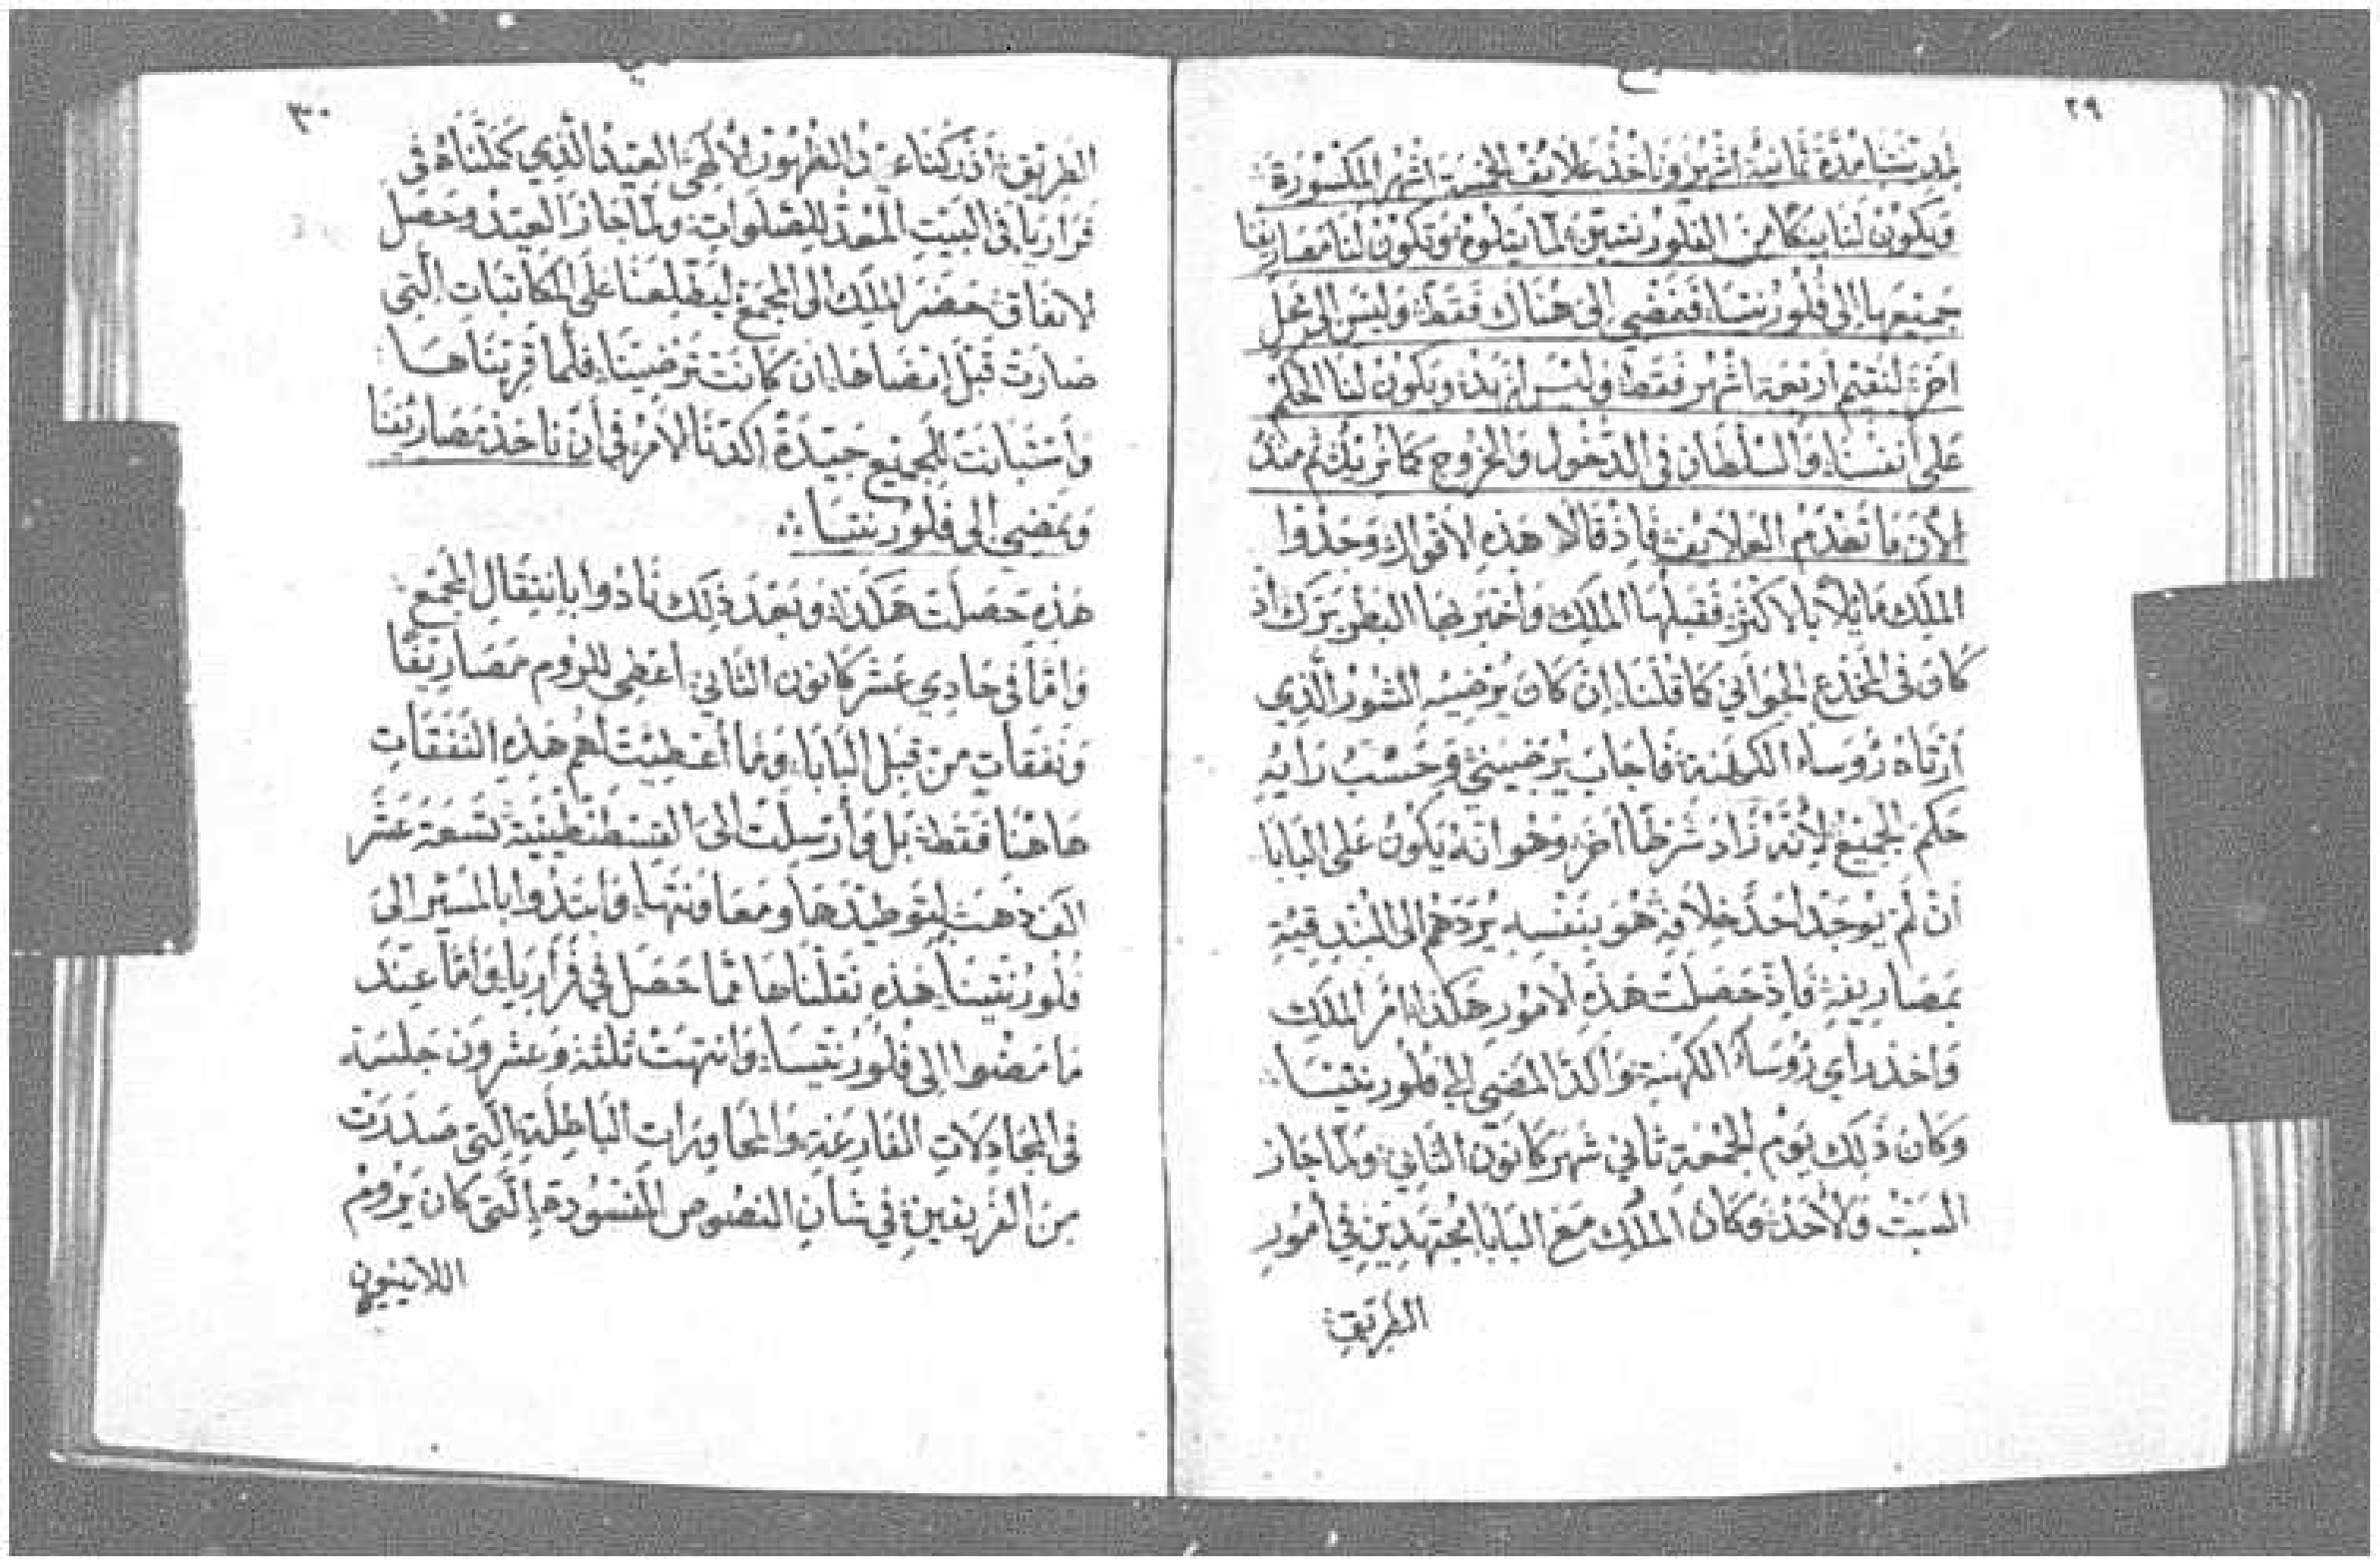 ٢٩
لمدينتنا مدة ثمانية اشهر وناخذ علايف الخمسة اشهر المكسورة
ويكون لنا بنكا من الفلورنتيين لما يتلوه وتكون لنا مصاريفنا
جميعها الى فلورنتيا، فنمضي الى هناك فقط، وليس الى محل
اخر لنقيم اربعة اشهر فقط وليس ازيد، ويكون لنا الحكم
على أنفسنا، والسلطان في الدخول والخروج كما نريد، ثم منذ
الأن ما تعدم العلايف، فاذ قالا هذه الاقوال، وجدوا
الملك مايلاً بالاكثر، فقبلها الملك واخبر بها البطريرك اذ
كان في المخدع الجواني كما قلنا، ان كان يرضيه الشور الذي
أرتاه رؤساء الكهنة، فاجاب يرضيني، وحسب رايه
حكم الجميع لأنه زاد شرطا اخر، وهو انه يكون على البابا
أن لم يوجد احد خلافه هو بنفسه يردهم الى البندقية
بمصاريفه، فاذ حصلت هذه الامور هكذا، امر الملك
واخذ رأي رؤساء الكهنة، وأكد المضي الى فلورنتيا
وكان ذلك يوم الجمعة ثاني شهر كانون الثاني، ولما جاز
السبت والأحد، وكان الملك مع البابا مجتهدين في امور
الطريق
٣٠
الطريق، أدركنا عيد الظهور الالهي، العيد الذي كملناه في
فراريا، في البيت المعد للصلوات، ولما جاز العيد، وحصل
الاتفاق، حضر الملك الى المجمع ليطلعنا على المكاتبات التي
صارت قبل إمضاها، ان كانت ترضينا، فلما قريناها
وأستبانت للجميع جيدة، اكدنا الأمر في أن ناخذ مصاريفنا
ونمضي الى فلورنتيا
هذه حصلت هكذا، وبعد ذلك نادوا بانتقال المجمع
واما في حادي عشر كانون الثاني، اعطى للروم مصاريفا
ونفقات من قبل البابا، وما أعطيت لهم هذه النفقات
هاهنا فقط، بل وأرسلت الى القسطنطينية تسعة عشر
الف ذهب لتوطيدها ومعاونتها، وابتدوا بالمسير الى
فلورنتيا، هذه نقلناها مما حصل في فراريا، وأما عند
ما مضوا الى فلورنتيا، وانتهت ثلثة وعشرون جلسة
في المجادلات الفارغة، والمحاورات الباطلة، التي صدرت
من الفريقين، في شان النصوص المفسودة، التي كان يروم
اللاتينيون